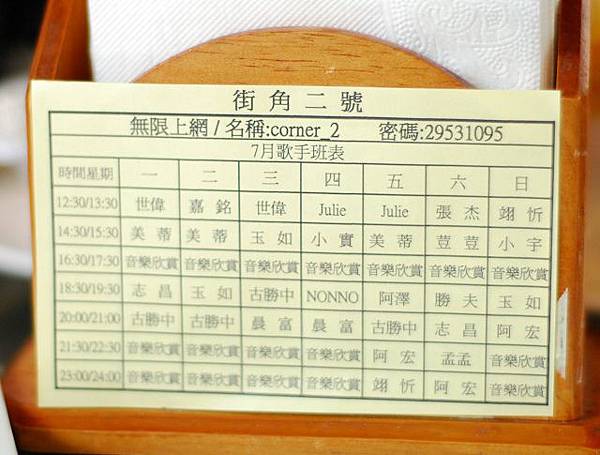 街角二號
無限上網/名稱:corner_2 密碼:29531095
7月歌手班表
時間星期 一 二 三 四 五 六 日
12:30/13:30 世偉 嘉銘 世偉 Julie Julie 張杰 翊忻
14:30/15:30 美蒂 美蒂 玉如 小實 美蒂 荳荳 小宇
16:30/17:30 音樂欣賞 音樂欣賞 音樂欣賞 音樂欣賞 音樂欣賞 音樂欣賞 音樂欣賞
18:30/19:30 志昌 玉如 古勝中 NONNO 阿澤 勝夫 玉如
20:00/21:00 古勝中 古勝中 晨富 晨富 古勝中 志昌 阿宏
21:30/22:30 音樂欣賞 音樂欣賞 音樂欣賞 音樂欣賞 阿宏 孟孟 音樂欣賞
23:00/24:00 音樂欣賞 音樂欣賞 音樂欣賞 音樂欣賞 翊忻 音樂欣賞 音樂欣賞